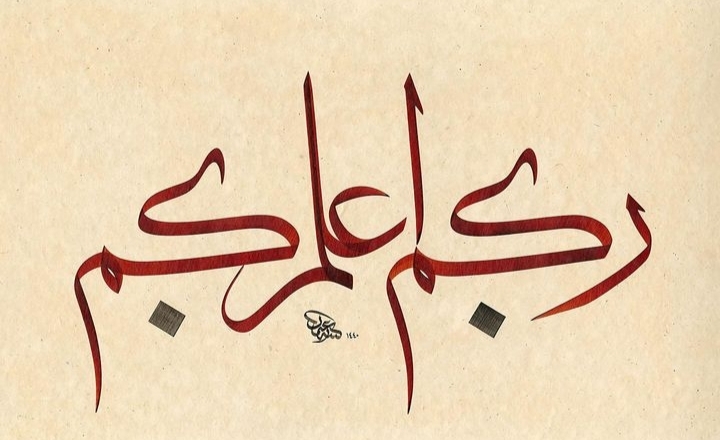 ربكم اعلم بكم
١٤٤٠